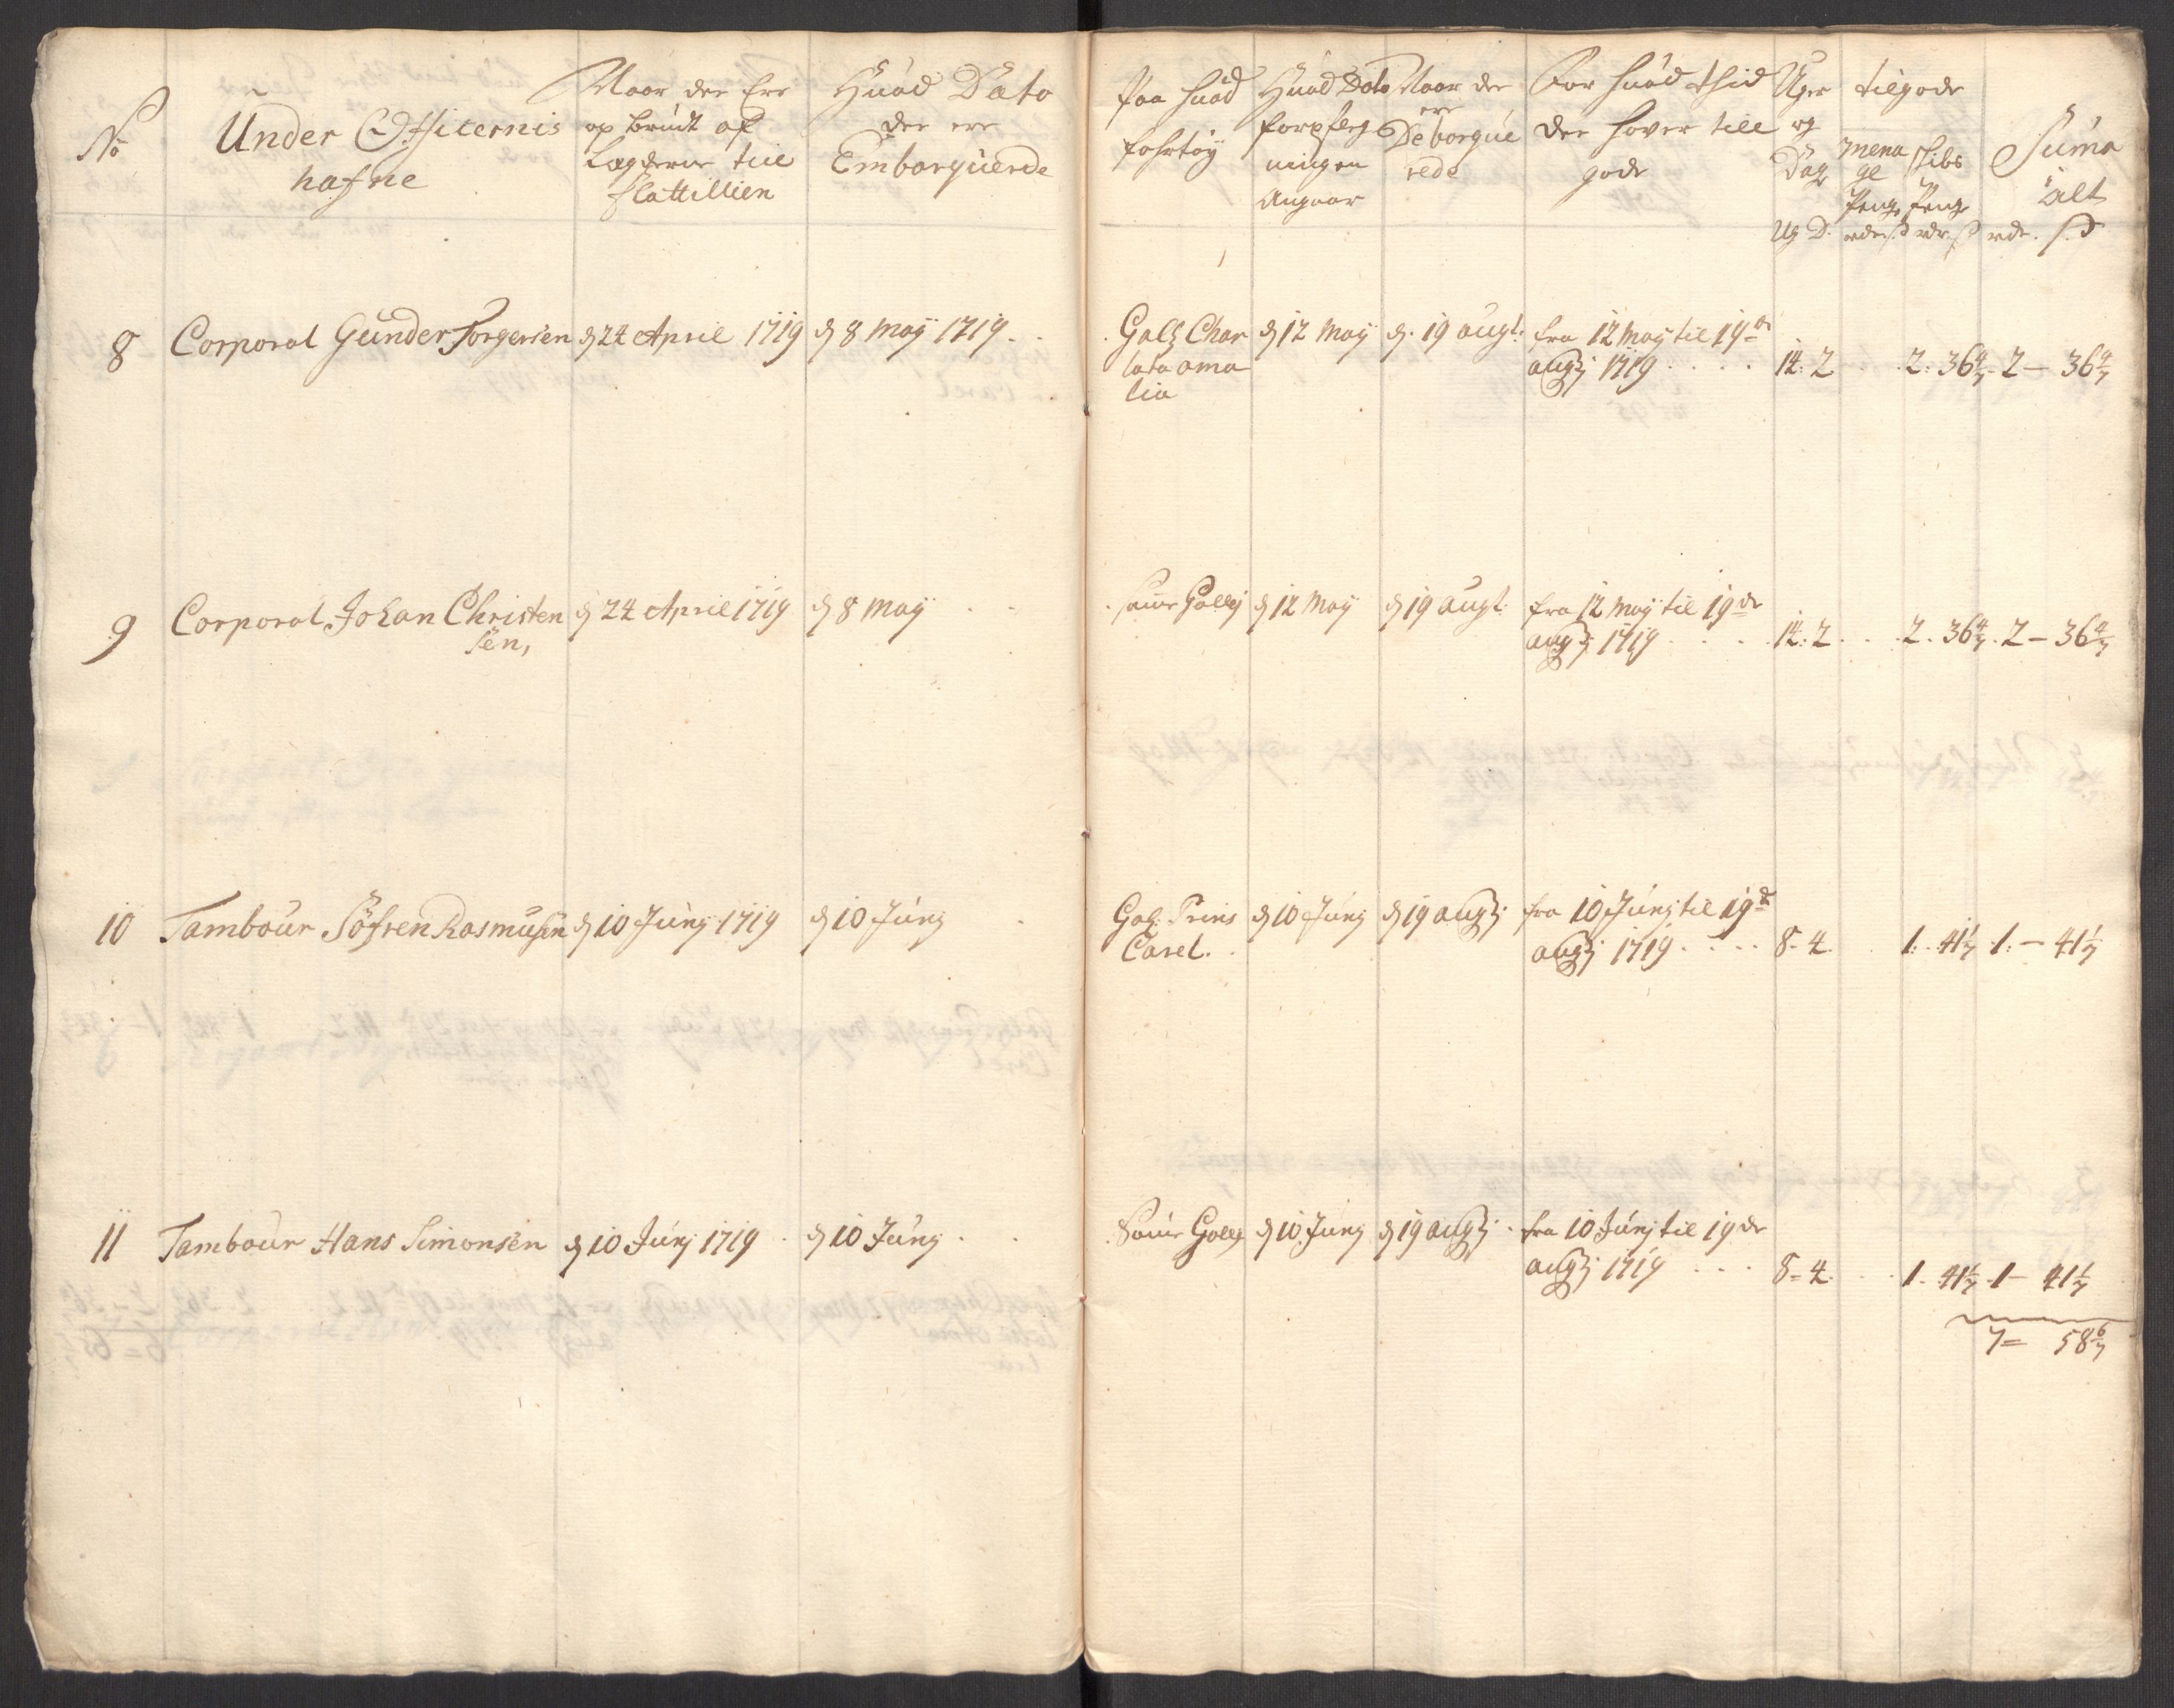 No
Under Officernis
nafne
Naar der Ere
op brudt af
Lægderne till
flottillien
Huad Dato
der ere
Embarquerde
Paa huad
fahrtöÿ
Huad Dato
forpfleg
ningen
Angaar
Naar der
ere
Debarque
rede
For huad thid
der hafver till
gode
Uger
og
Dage
Ug D.
tilgode
mena
ge
Penge
rdr. ß
skibs
Penge
rdr. ß
Suma
alt
rdr. ß
8 Corporal Gunder Torgersen d 24 April 1719 d 8 maÿ 1719 Galj Char d 12 Maÿ d. 19 augt. fra 12 Maÿ til 19de
lata ama augtj 1719 14: 2 2: 36 4/7 2 — 36 4/7
lia
9 Corporal Johan Christen d 24 April 1719 d 8 Maÿ same Gallej d 12 Maÿ d 19 augt. fra 12 Maÿ til 19de
sen, augtj 1719 14: 2 2. 36 4/7 2 — 36 4/7
10 Tambour Söfren Rasmusen d 10 Junj 1719 d 10 Junj Galj. Prins d 10 Junj d 19 augtj fra 10 Junj til 19de
Carel. augtj 1719 8- 4 1. 41 1/7 1. — 41 1/7
11 Tambour Hans Simonsen d 10 Junj 1719 d 10 Junj Same Gallej d 10 Junj d 19 augtj fra 10 Junj til 19de
augtj 1719 8= 4. 1. 41 1/7 1 — 41 1/7
7= 58 6/7